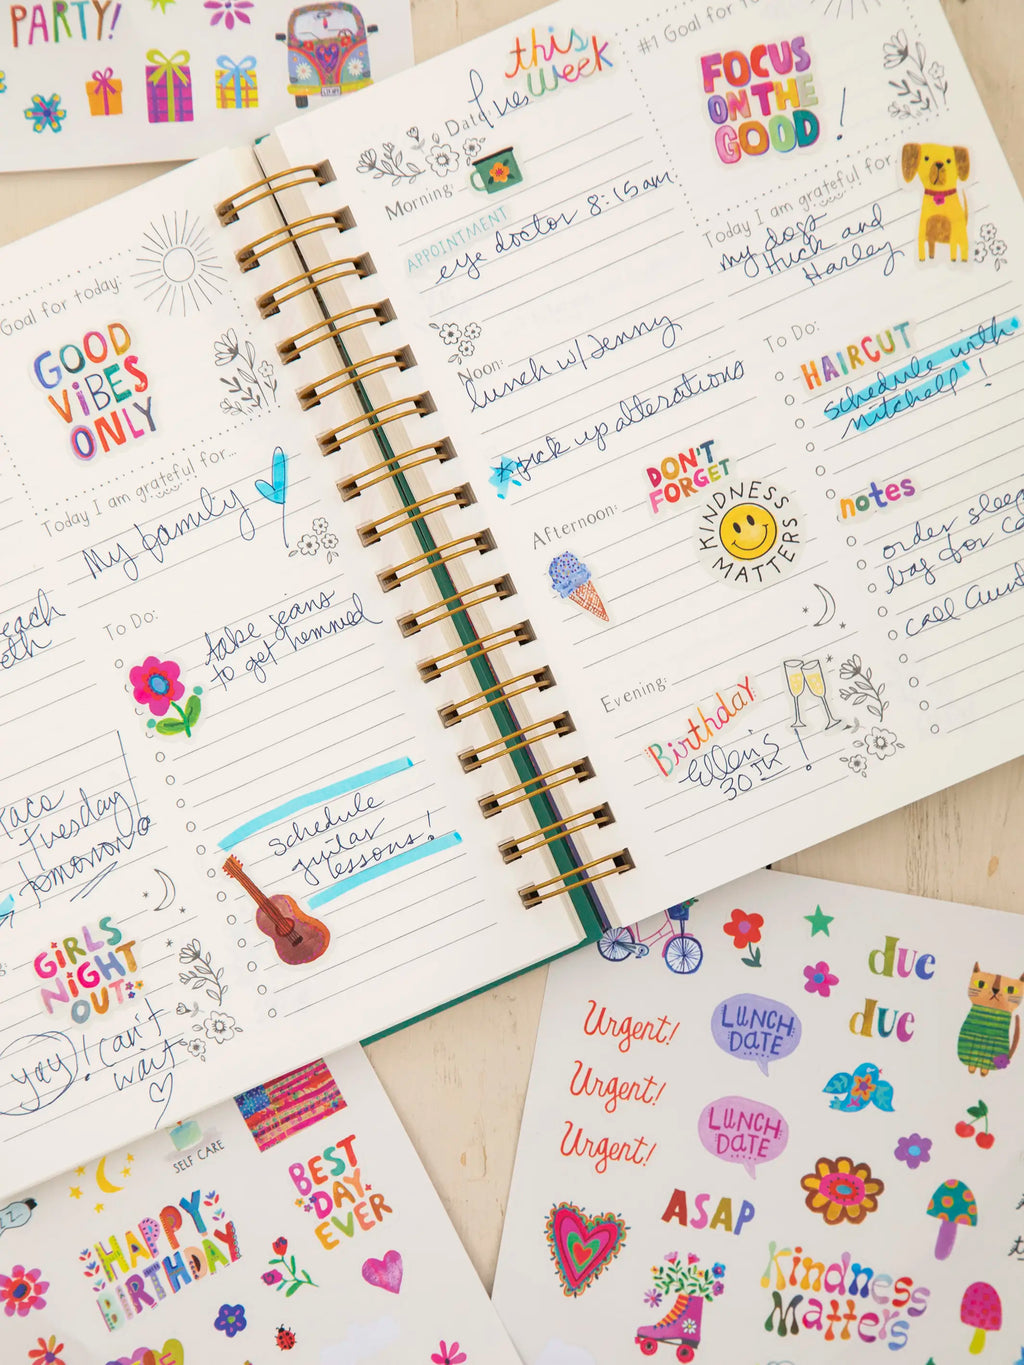 PARTY!
Goal for today:
GOOD
ViBES
ONLY
Today I am grateful for...
My family
To Do:
take jeans
to get hemmed
Tuesday
tomorrow
schedule
guitar
lessons!
GIRLS
NIGHT
OUT
yay! can't
wait
this
week
Date: Tues
Morning:
APPOINTMENT
eye doctor 8:15am
Noon:
lunch w/Jenny
*pick up alterations
DON'T
FORGET
KINDNESS
MATTERS
Afternoon:
Evening:
Birthday
Ellen's
30TH!
#1 Goal for
FOCUS
ON THE
GOOD!
Today I am grateful for...
my dogs
Huck and
Harley
To Do:
HAIRCUT
schedule with
mitchell!
notes
order
bag for
call
SELF CARE
BEST
DAY
EVER
HAPPY
BIRTHDAY
due
due
Urgent!
Urgent!
Urgent!
LUNCH
DATE
LUNCH
DATE
ASAP
Kindness
Matters